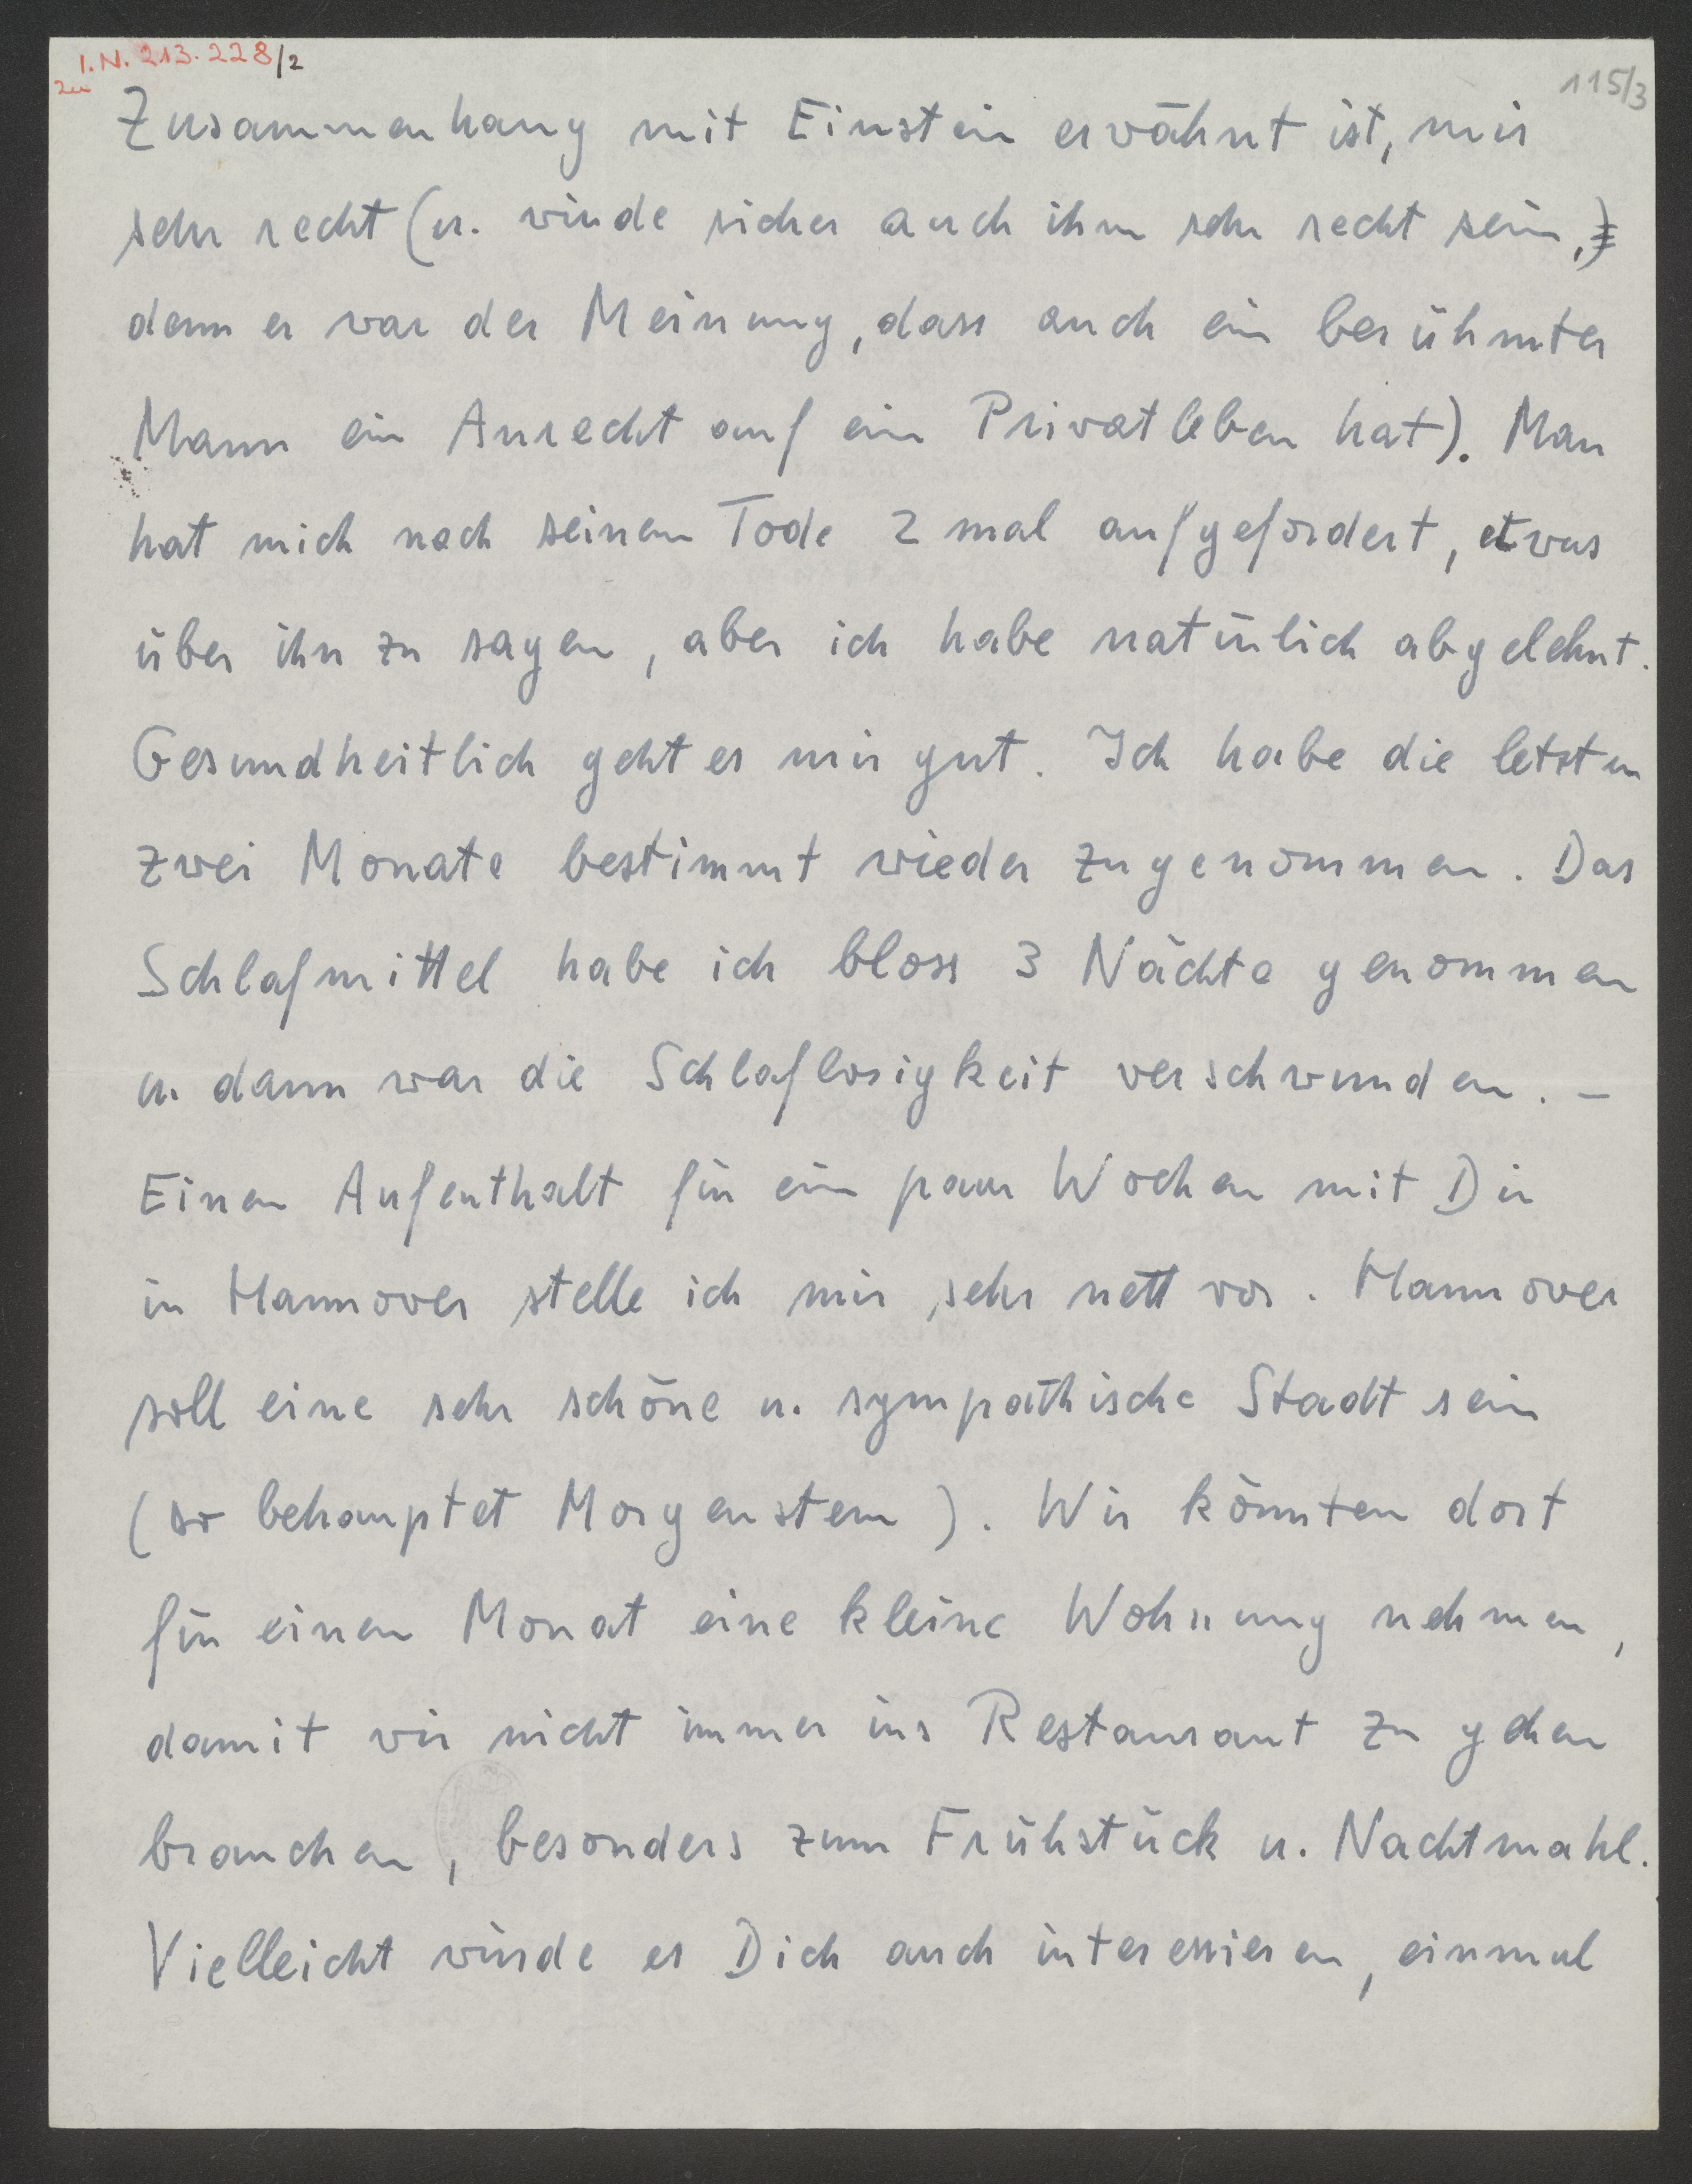 I.N. 213.228/2
zu
115/3
Zusammenhang mit Einstein erwähnt ist, mir
sehr recht (u. würde sicher auch ihm sehr recht sein,
denn er war der Meinung, dass auch ein berühmter
Mann ein Anrecht auf ein Privatleben hat). Man
hat mich nach seinem Tode 2 mal aufgefordert, etwas
über ihn zu sagen, aber ich habe natürlich abgelehnt.
Gesundheitlich geht es mir gut. Ich habe die letzten
zwei Monate bestimmt wieder zugenommen. Das
Schlafmittel habe ich bloss 3 Nächte genommen
u. dann war die Schlaflosigkeit verschwunden. –
Einen Aufenthalt für ein paar Wochen mit Dir
in Hannover stelle ich mir sehr nett vor. Hannover
soll eine sehr schöne u. sympathische Stadt sein
(so behauptet Morgenstern). Wir könnten dort
für einen Monat eine kleine Wohnung nehmen,
damit wir nicht immer ins Restaurant zu gehen
brauchen, besonders zum Frühstück u. Nachtmahl.
Vielleicht würde es Dich auch interessieren, einmal